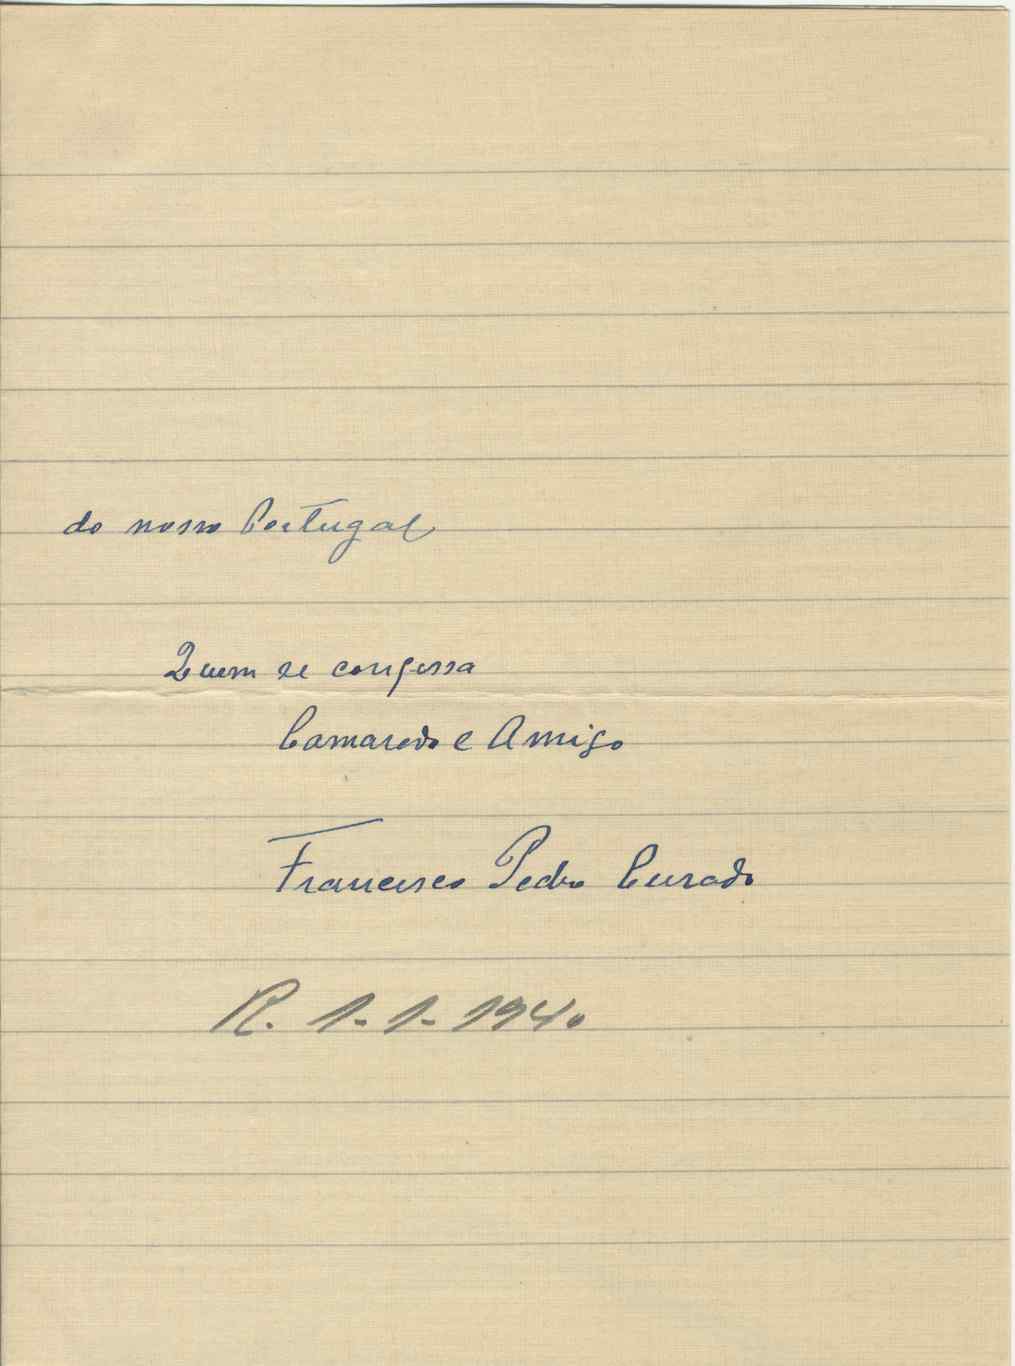 do nosso Portugal
Quem se confessa
Camarada e Amigo
Francisco Pedro Curado
R. 1-1-1940